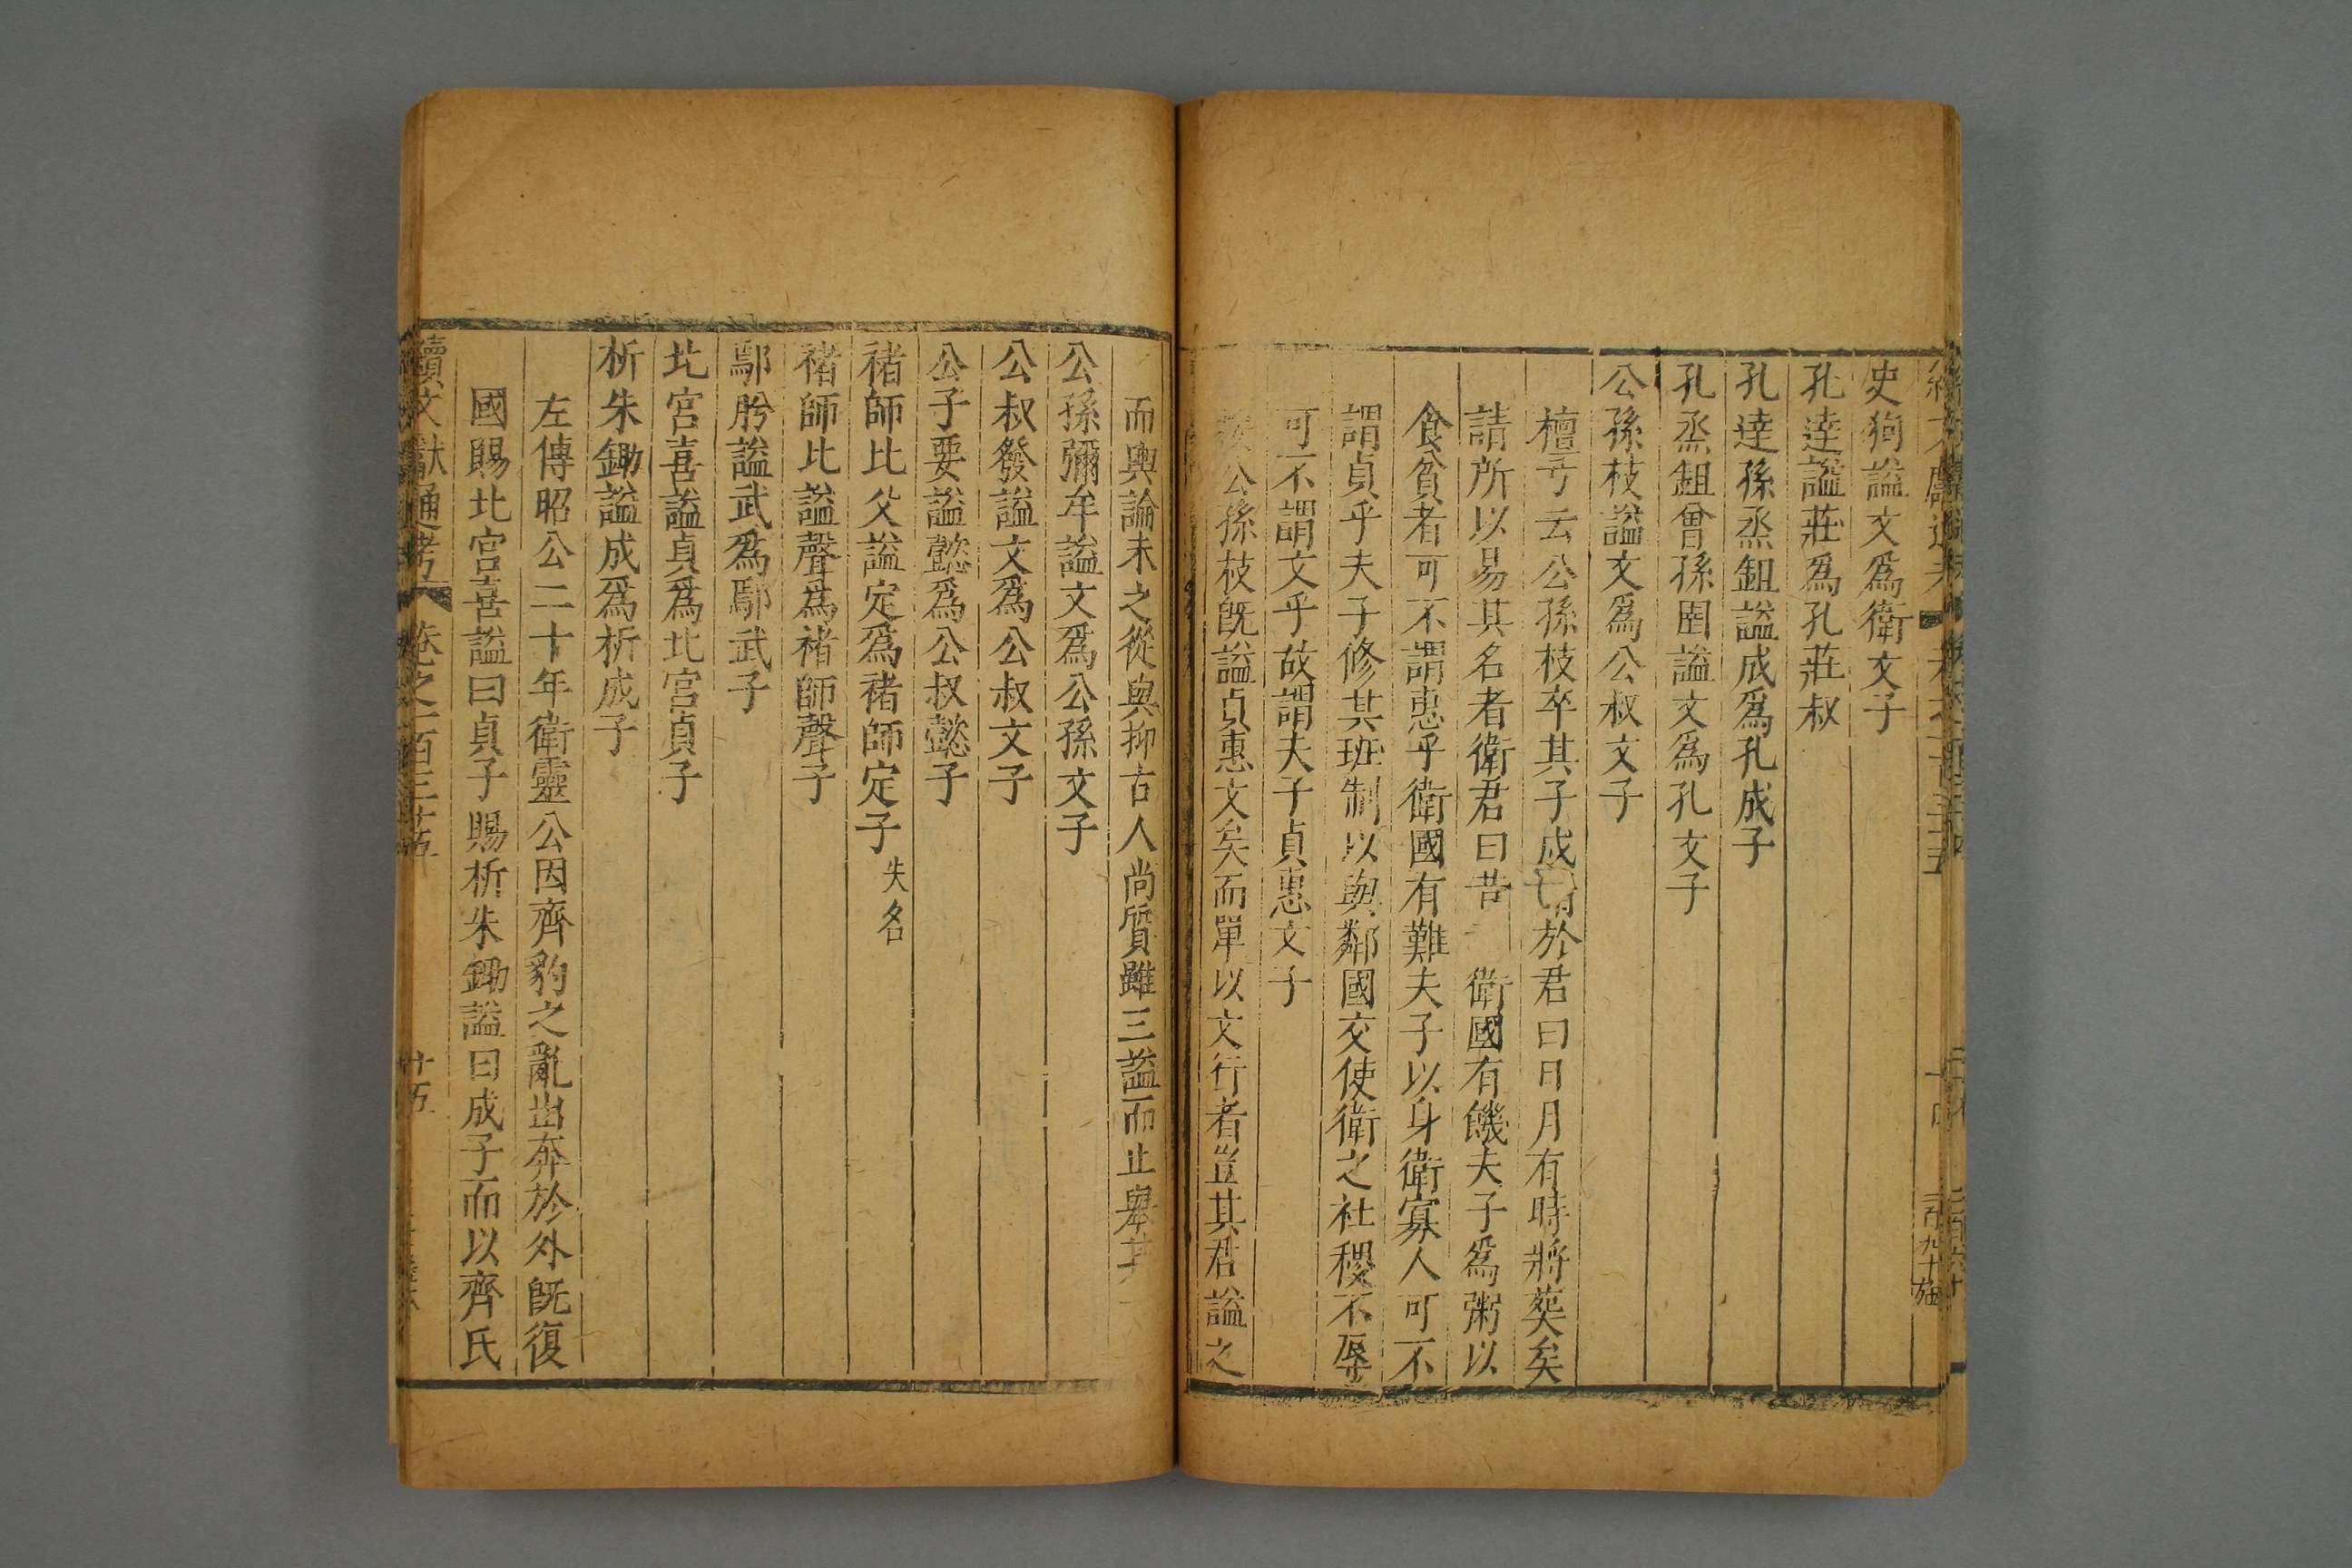 史狗謚文爲衛文子
孔逹謚莊爲孔莊叔
孔逹孫烝鉏謚成爲孔成子
孔烝鉏曾孫圉謚文爲孔文子
公孫枝謚文爲公叔文子
檀弓云公孫枝卒其子戍請於君曰日月有時將葬矣
請所以易其名者衛君曰昔衛國有饑夫子爲粥以
食貧者可不謂惠乎衛國有難夫子以身衛寡人可不
謂貞乎夫子修其班制以與鄰國交使衛之社稷不辱
可不謂文乎故謂夫子貞惠文子
公孫枝旣謚貞惠文矣而單以文行者豈其君謚之
而輿論未之從與抑古人尚質雖三謚而止舉其
公孫彌牟謚文爲公孫文子
公叔發謚文爲公叔文子
公子要謚懿爲公叔懿子
褚師比父謚定爲褚師定子失名
褚師比謚聲爲褚師聲子
鄢肹謚武爲鄢武子
北宮喜謚貞爲北宮貞子
析朱鋤謚成爲析成子
左傳昭公二十年衛靈公因齊豹之亂出奔於外旣復
國賜北宮喜謚曰貞子賜析朱鋤謚曰成子而以齊氏
續文獻通考 卷之一百三十五 廿五